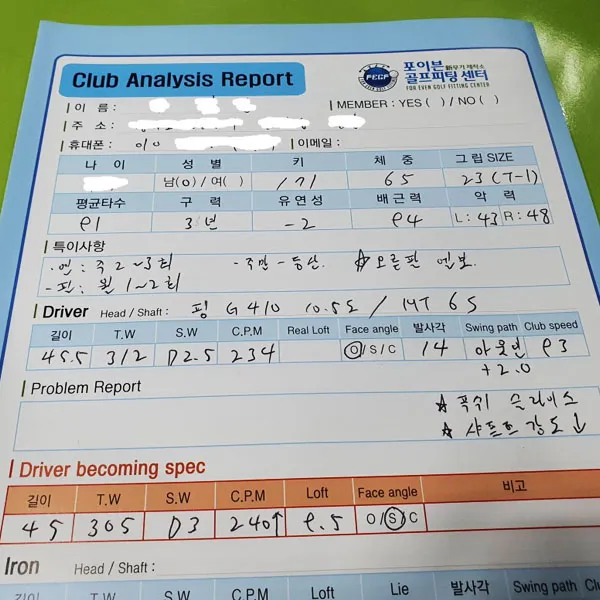 Club Analysis Report
FECF
포이븐 新무기 제작소
골프피팅 센터
FOR EVEN GOLF FITTING CENTER
이 름 :
MEMBER : YES ( ) / NO ( )
주 소 :
휴대폰 : 010
이메일 :
나 이 성 별 키 체 중 그 립 SIZE
남(O) / 여( ) 171 65 23 (T-1)
평균타수 구 력 유연성 배근력 악 력
91 3년 -2 94 L : 43 R : 48
특이사항
· 연 : 주 2~3회 - 주말 - 등산. ☆ 오른팔 엘보.
- 필 : 월 1~2회
Driver Head / Shaft : 핑 G410 10.5도 / MT 6S
길이 T.W S.W C.P.M Real Loft Face angle 발사각 Swing path Club speed
45.5 312 D2.5 234 O / S / C 14 아웃인 93
+2.0
Problem Report
☆ 푸쉬 슬라이스
☆ 샤프트 강도 ↓
Driver becoming spec
길이 T.W S.W C.P.M Loft Face angle 비고
45 305 D3 240↑ 9.5 O / S / C
Iron Head / Shaft :
길이 T.W S.W C.P.M Loft Lie 발사각 Swing path Club